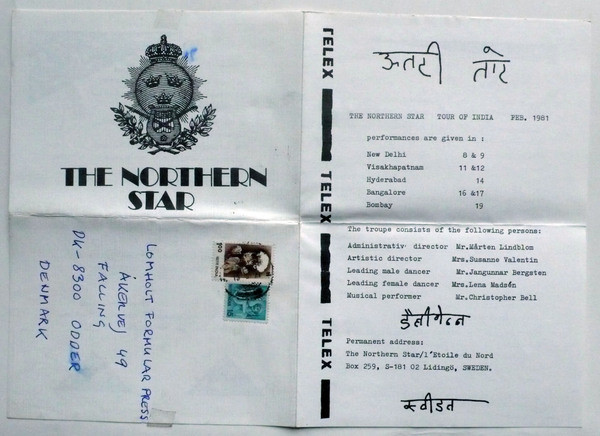 THE NORTHERN
STAR
LOMHOLT FORMULAR PRESS
ÅKERVEJ 49
FALLING
DK-8300 ODDER
DENMARK
TELEX
TELEX
TELEX
TELEX
ऊतटी तोर
THE NORTHERN STAR TOUR OF INDIA FEB. 1981
performances are given in :
New Delhi 8 & 9
Visakhapatnam 11 &12
Hyderabad 14
Bangalore 16 &17
Bombay 19
The troupe consists of the following persons:
Administrativ director Mr.Mårten Lindblom
Artistic director Mrs.Susanne Valentin
Leading male dancer Mr.Jangunnar Bergsten
Leading female dancer Mrs.Lena Madsén
Musical performer Mr.Christopher Bell
Permanent address:
The Northern Star/l'Etoile du Nord
Box 259, S-181 02 Lidingö, SWEDEN.
स्वीडन